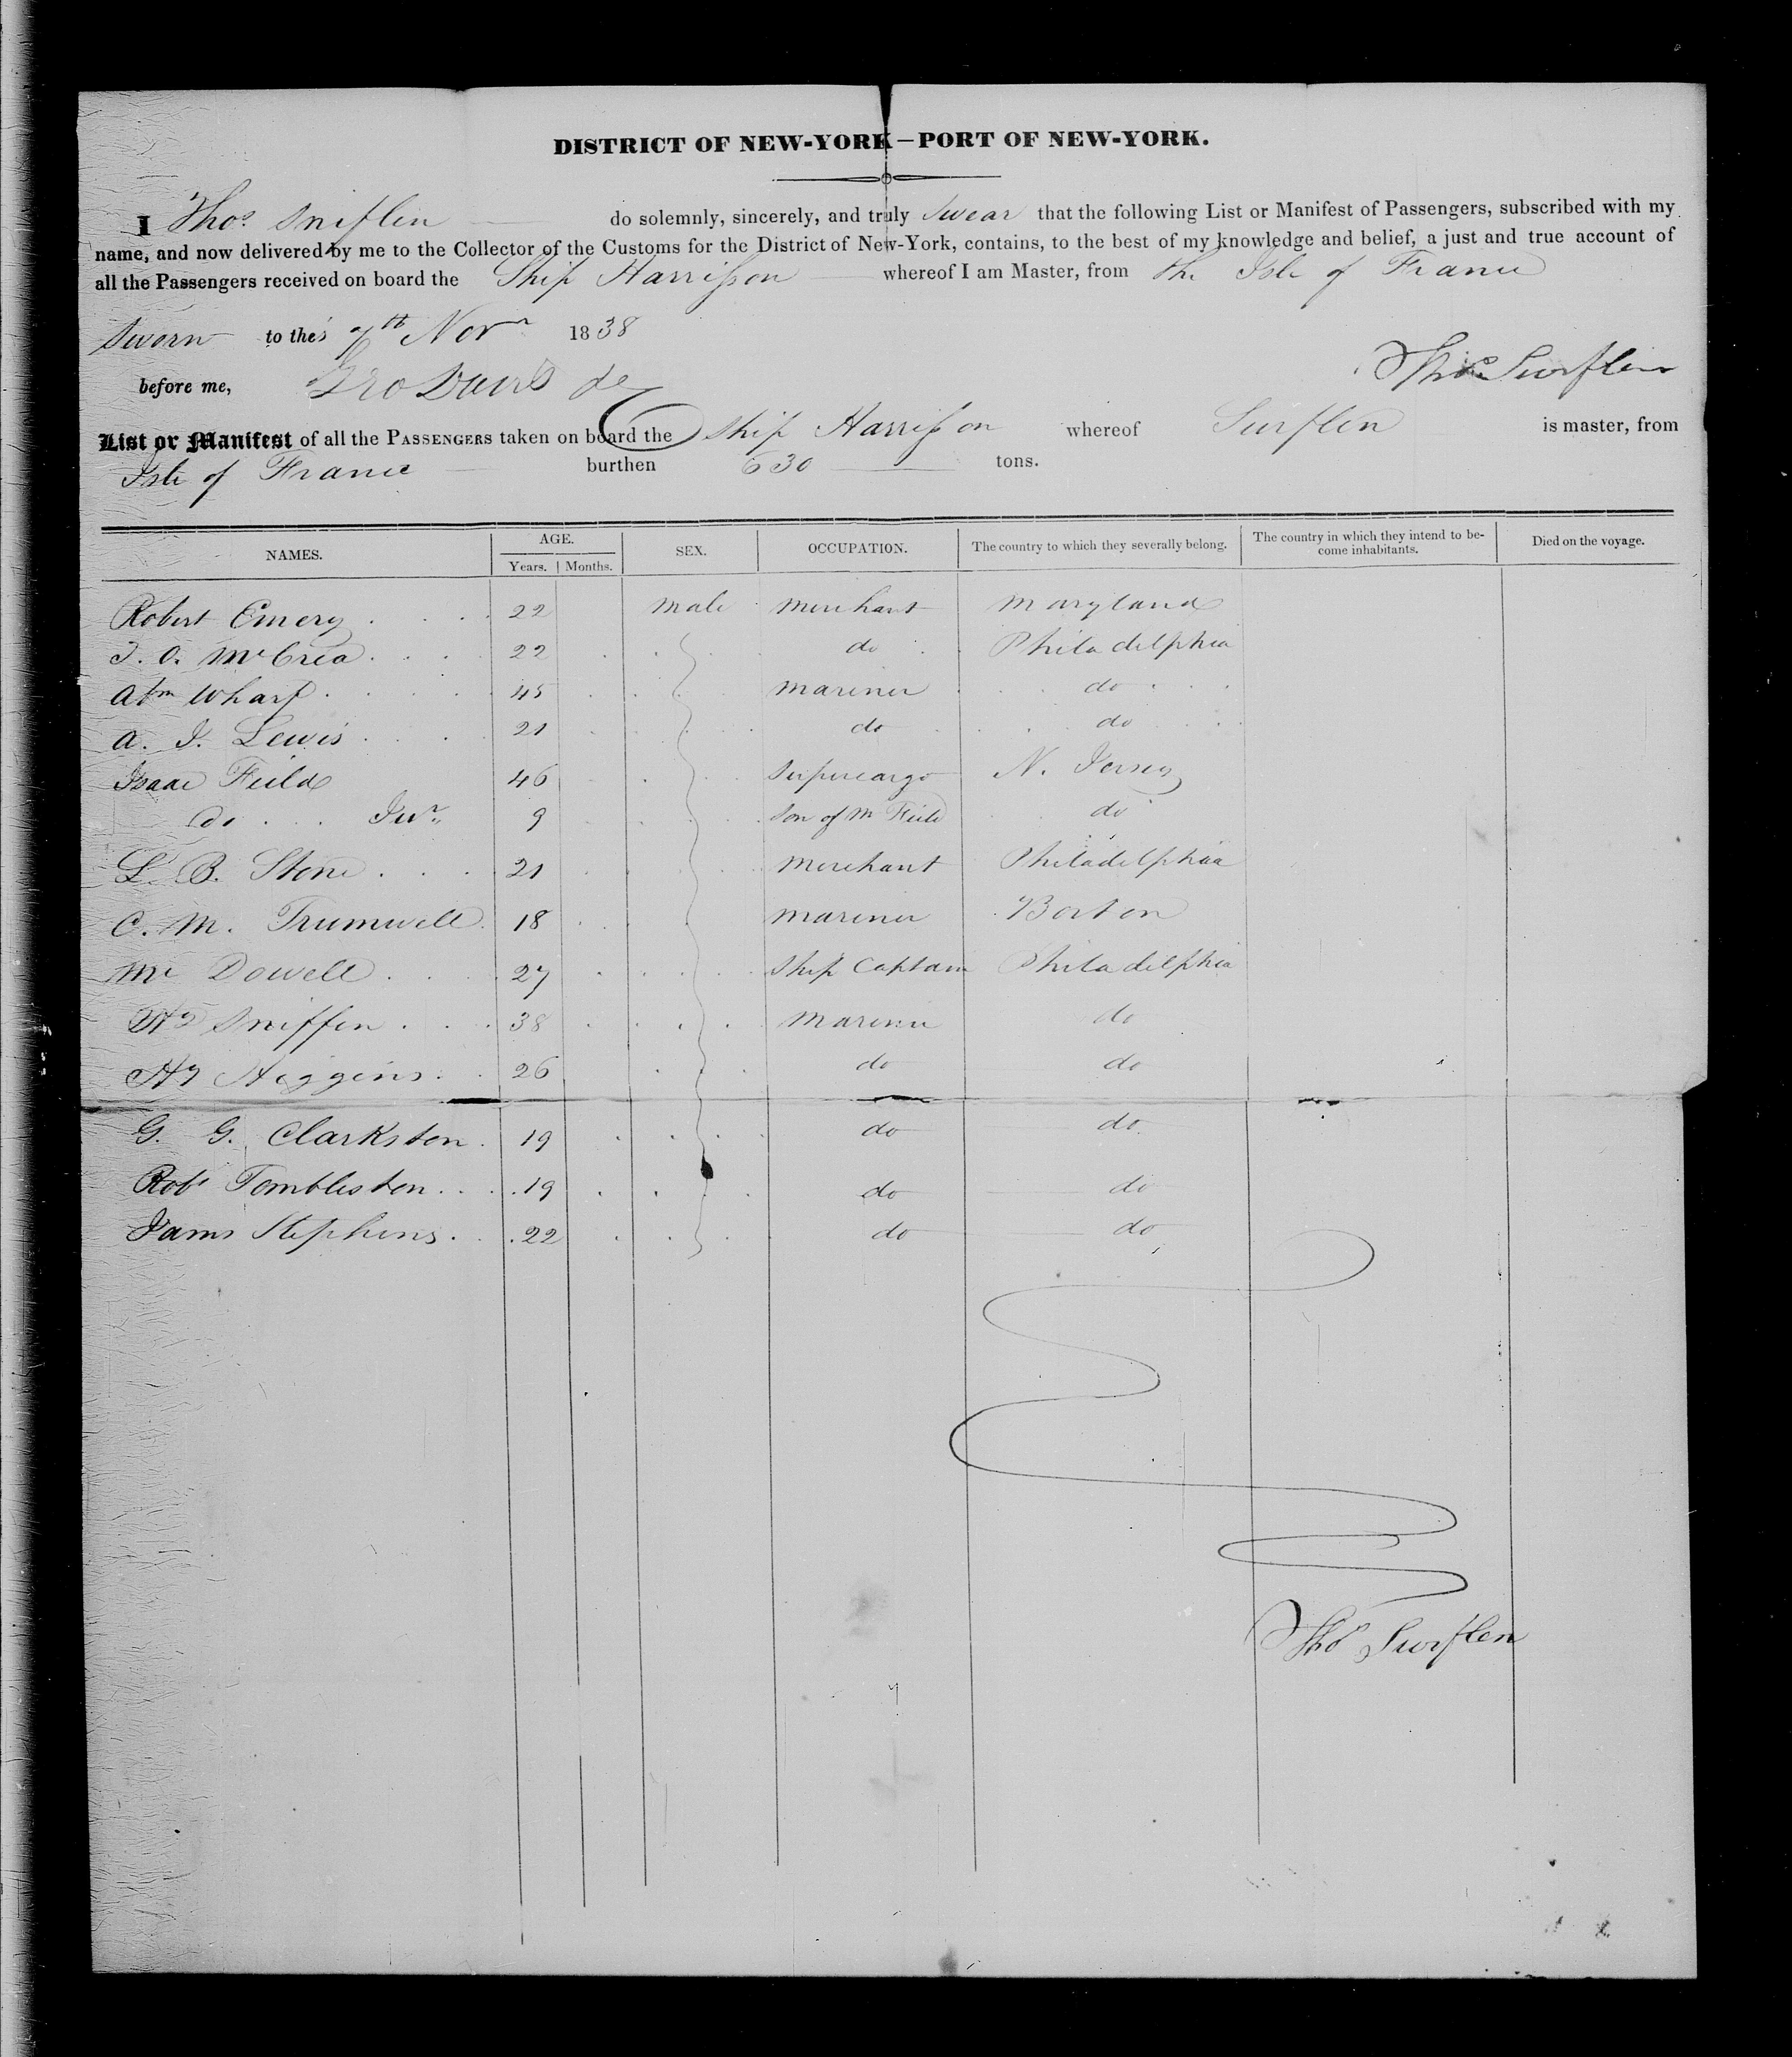 DISTRICT OF NEW-YORK—PORT OF NEW-YORK.
I Thos. Sniflen do solemnly, sincerely, and truly Swear that the following List or Manifest of Passengers, subscribed with my
name, and now delivered by me to the Collector of the Customs for the District of New-York, contains, to the best of my knowledge and belief, a just and true account of
all the Passengers received on board the Ship Harrisson whereof I am Master, from The Isle of France
Sworn to the 7th Novr 1838
Thos
before me, Geo Davis
List or Manifest of all the PASSENGERS taken on board the Ship Harrisson whereof Surflen is master, from
Isle of France burthen 630 tons.
NAMES. AGE. SEX. OCCUPATION. The country to which they severally belong. The country in which they intend to be- Died on the voyage.
Years. Months. come inhabitants.
Robert Emery 22 male merchant Maryland
J. O. McCrea 22 do Philadelphia
Wharf 45 mariner do
A. J. Lewis 21 do do
Isaac Feild 46 Supercargo N. Jersey
do Junr. 9 Son of Mr Feild do
L. B. Stone 21 merchant Philadelphia
C. M. Trumwell 18 mariner Boston
Mc Dowell 27 Ship Captain Philadelphia
Sniffen 38 Mariner do
Hy Higgins 26 do do
G. G. Clarkston 19 do do
Robt Tombleston 19 do do
James Stephens 22 do do
Thos Surflen